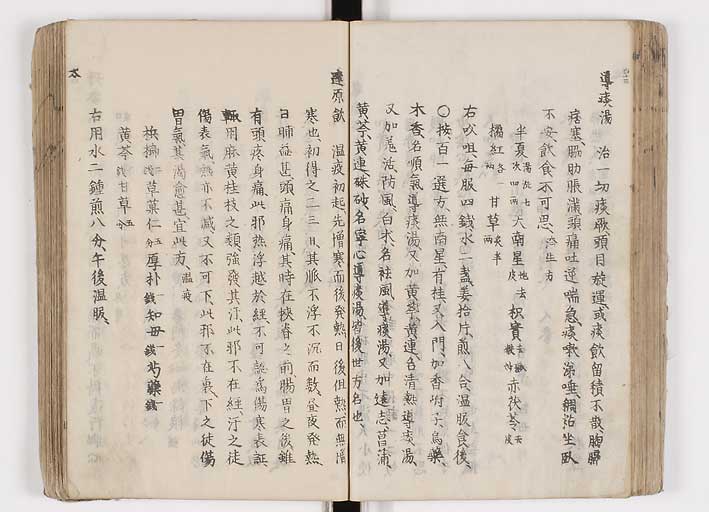 導痰湯 治一切痰厥頭目旋運或痰飲留積不散胸膈
痞塞脇肋脹滿頭痛吐逆喘急痰嗽涕唾稠粘坐臥
不安飲食不可思 濟生方
半夏 湯泡七次 四両 天南星 炮去皮 枳實 去瓤麩炒 赤茯苓 去皮
橘紅 各一両 甘草 炙半両
右㕮咀每服四錢水二盞姜拾片煎八合溫服食後
〇按百一選方無南星有桂又入門加香附子烏藥
木香名順氣導痰湯又加黃芩黃連名清熱導痰湯
又加羗活防風白朮名祛風導痰湯又加遠志菖蒲
黃芩黃連硃砂名寧心導痰湯皆後世方名也
達原飲 溫疫初起先憎寒而後發熱日後但熱而無憎
寒也初得之二三日其脈不浮不沉而數晝夜發熱
日晡益甚頭痛身痛其時在挾脊之前腸胃之後雖
有頭疼身痛此邪熱浮越於經不可認為傷寒表証
輒用麻黃桂枝之類強發其汗此邪不在經汗之徒
傷表氣熱亦不減又不可下此邪不在裏下之徒傷
胃氣其渴愈甚宜此方 溫疫
檳榔 草菓仁 五分 厚朴 一錢 知母 一錢 芍藥 一錢
黃芩 一錢 甘草 五分
右用水二鍾煎八分午後溫服